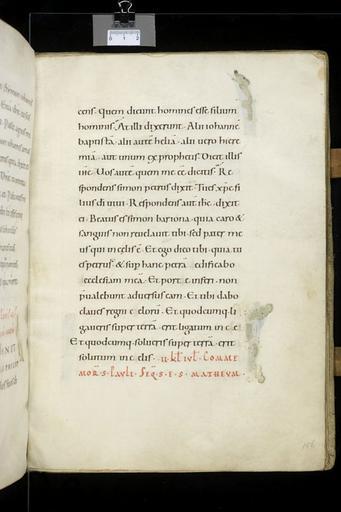 cens · Quem dicunt homines esse filium
hominis · At illi dixerunt · Alii iohannē
baptistā · alii autē heliā · alii uero hiere
miā · aut unum ex prophetis · Dicit illis
ihc · Uos autē quem me eē dicitis · Re
spondens simon petrus dixit · Tu es xpc fi
lius dī uiui · Respondens aut ihc · dixit
ei · Beatus es simon bariona · quia caro &
sanguis non reuelauit tibi · sed pater me
us qui in celis ē · Et ego dico tibi · quia tu
es petrus · & sup hanc petrā edificabo
ecclesiam meā · Et portę inferi · non
pualebunt aduersus eam · Et tibi dabo
claues regni cęlorū · Et quodcumq · li
gaueris super terrā · erit ligatum in
Et quodcumq · solueris super terrā · erit
solutum in celis · II · kƚ iuƚ · Comme
mor · S · Pauli · Seq · S · E · S · MATHEUM ·
156